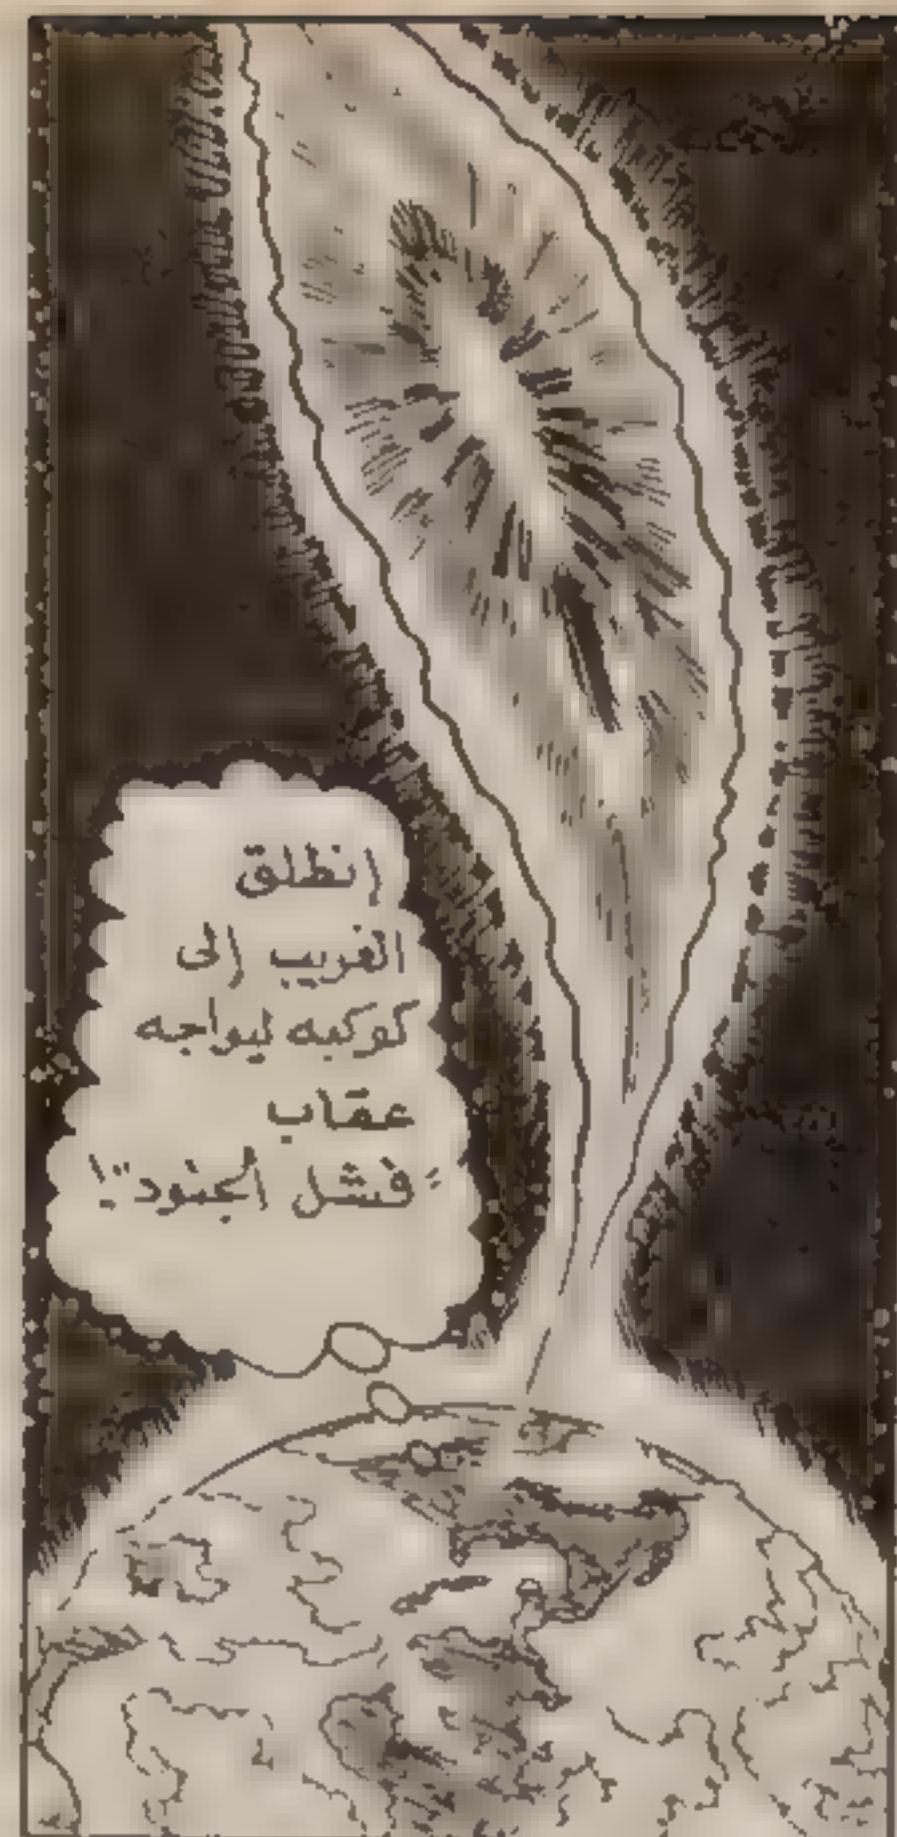 إنطلق
الغريب إلى
كوكبه ليواجه
عقاب
"فشل الجنود"!